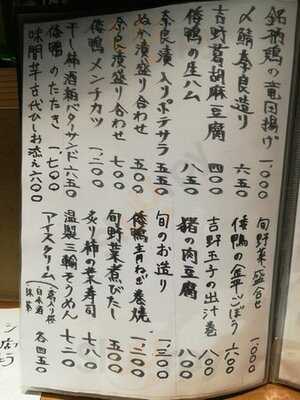 銘柄鶏の竜田揚げ 一、〇〇〇
〆鯖奈良造り 六五〇
吉野葛胡麻豆腐 四〇〇
倭鴨の生ハム 八五〇
奈良漬入りポテサラ 五五〇
ぬか漬盛り合わせ 五五〇
奈良漬盛り合わせ 七〇〇
倭鴨メンチカツ 一、二〇〇
干し柿酒粕バターサンド 六五〇
倭鴨のたたき 一、七〇〇
味間芋古代ひしお添え 六〇〇
旬野菜盛合せ 一、〇〇〇
倭鴨の金平ごぼう 六〇〇
吉野玉子の出汁巻 八〇〇
猪の肉豆腐 八〇〇
旬のお造り 一、二〇〇
倭鴨青ねぎ巻焼 一、三〇〇
旬野菜煮びたし 五〇〇
炙り柿の葉寿司 七八〇
温製三輪そうめん 七二〇
アイスクリーム 各四五〇
日本酒
抹茶